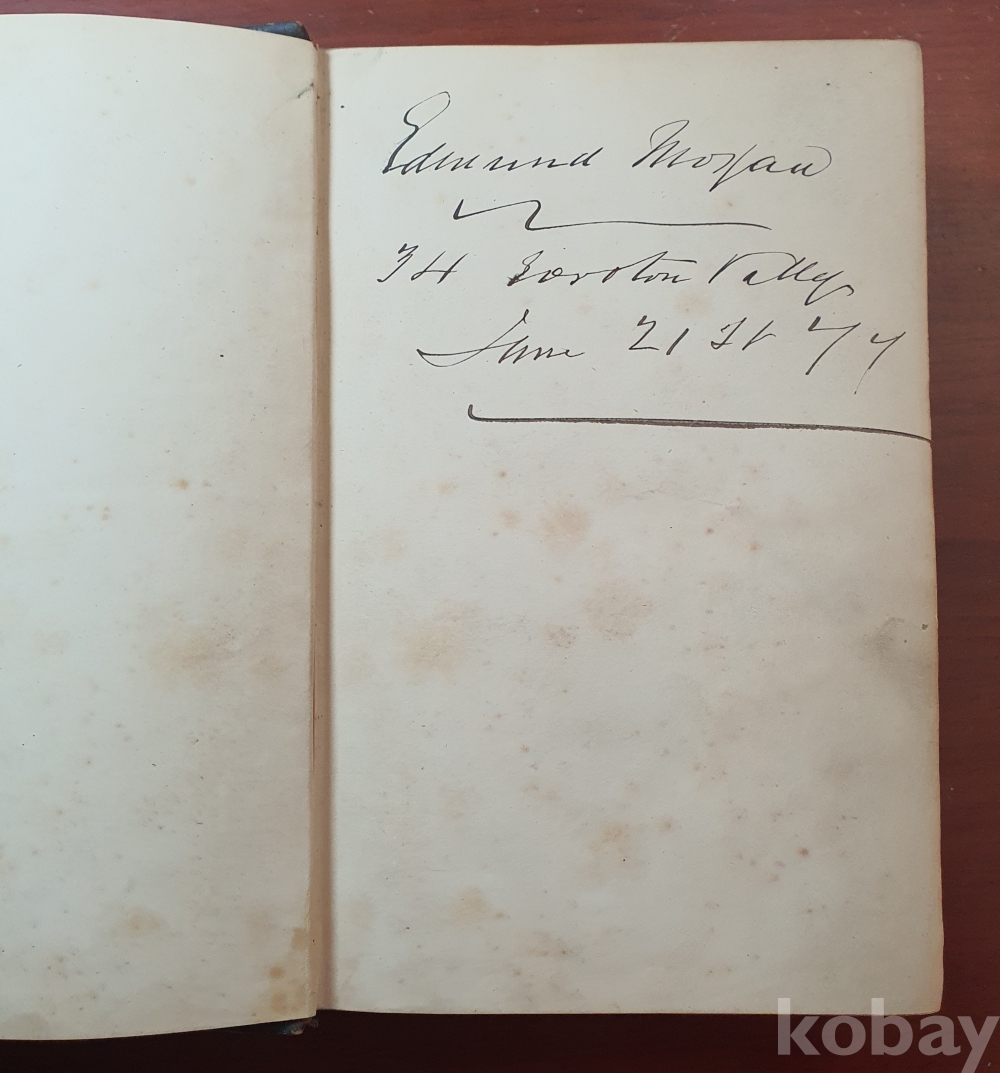 Edmund Morgan
34 Valley
June 21st 77
kobay